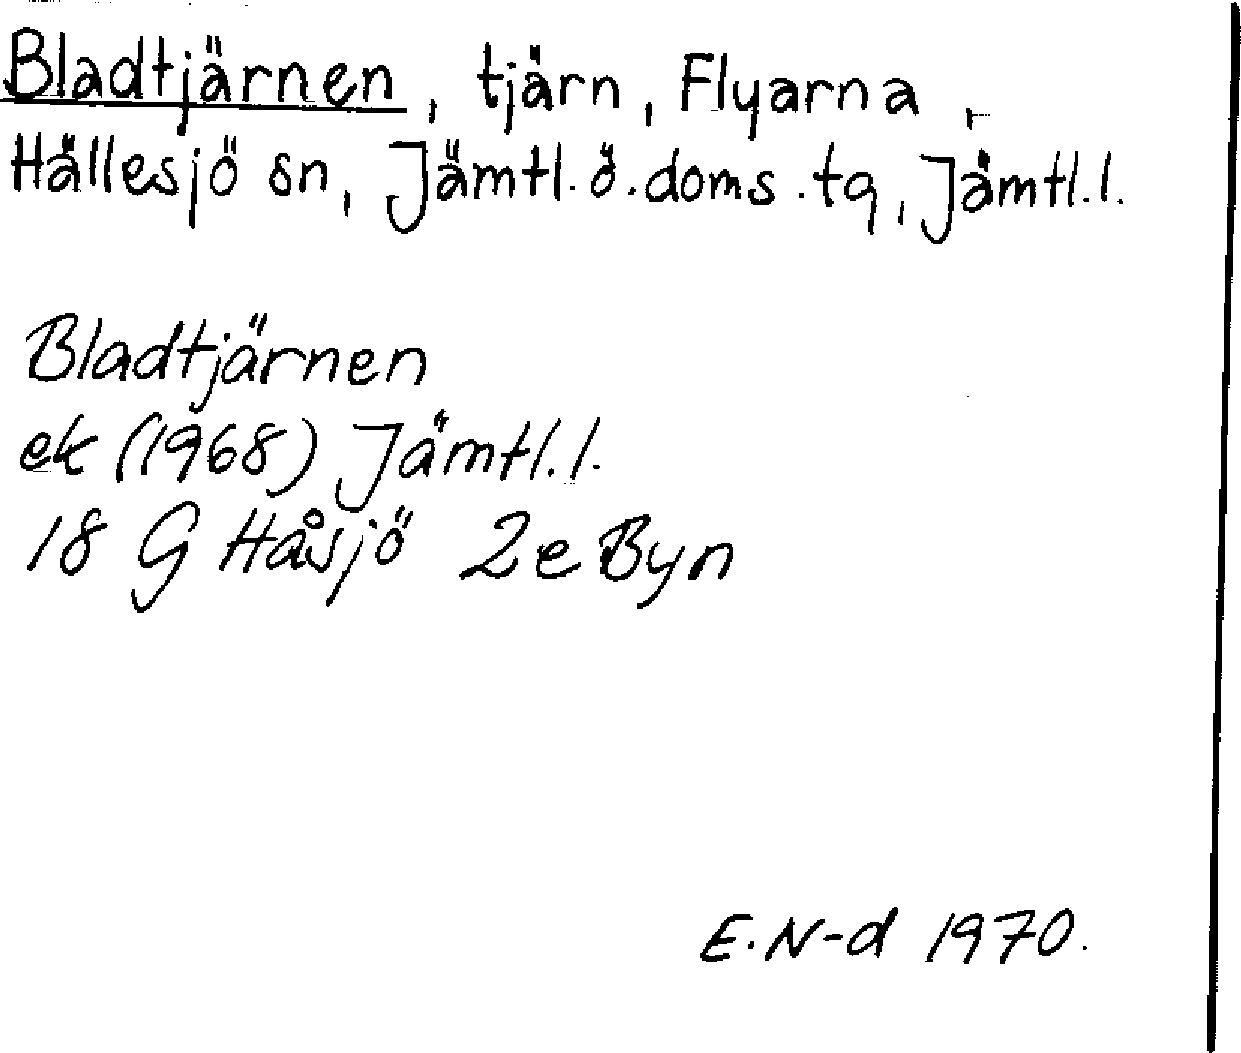 Bladtjärnen, tjärn, Flyarna,
Hällesjö sn, Jämtl. ö. doms. tg, Jämtl. l.
Bladtjärnen
ek (1968) Jämtl. l.
18 G Håsjö 2e Byn
E. N-d 1970.